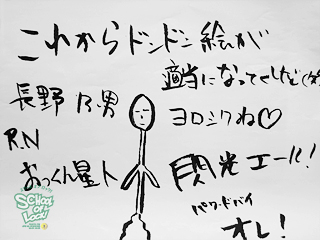 これからドンドン絵が
適当になってくけど(笑)
ヨロシクね♡
長野 乃男
R.N
おっくん星人
閃光エール!
パワード バイ
オレ!
SCHOOL OF LOCK!